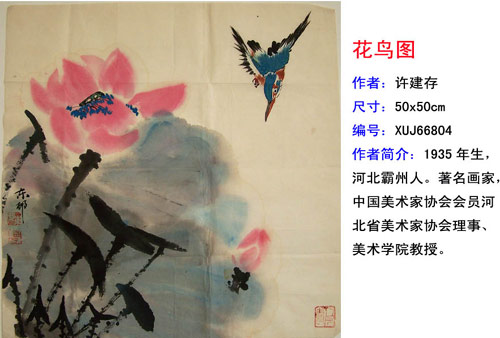 花鸟图
作者：许建存
尺寸：50x50cm
编号：XUJ66804
作者简介：1935 年生，
河北霸州人。著名画家，
中国美术家协会会员河
北省美术家协会理事、
美术学院教授。